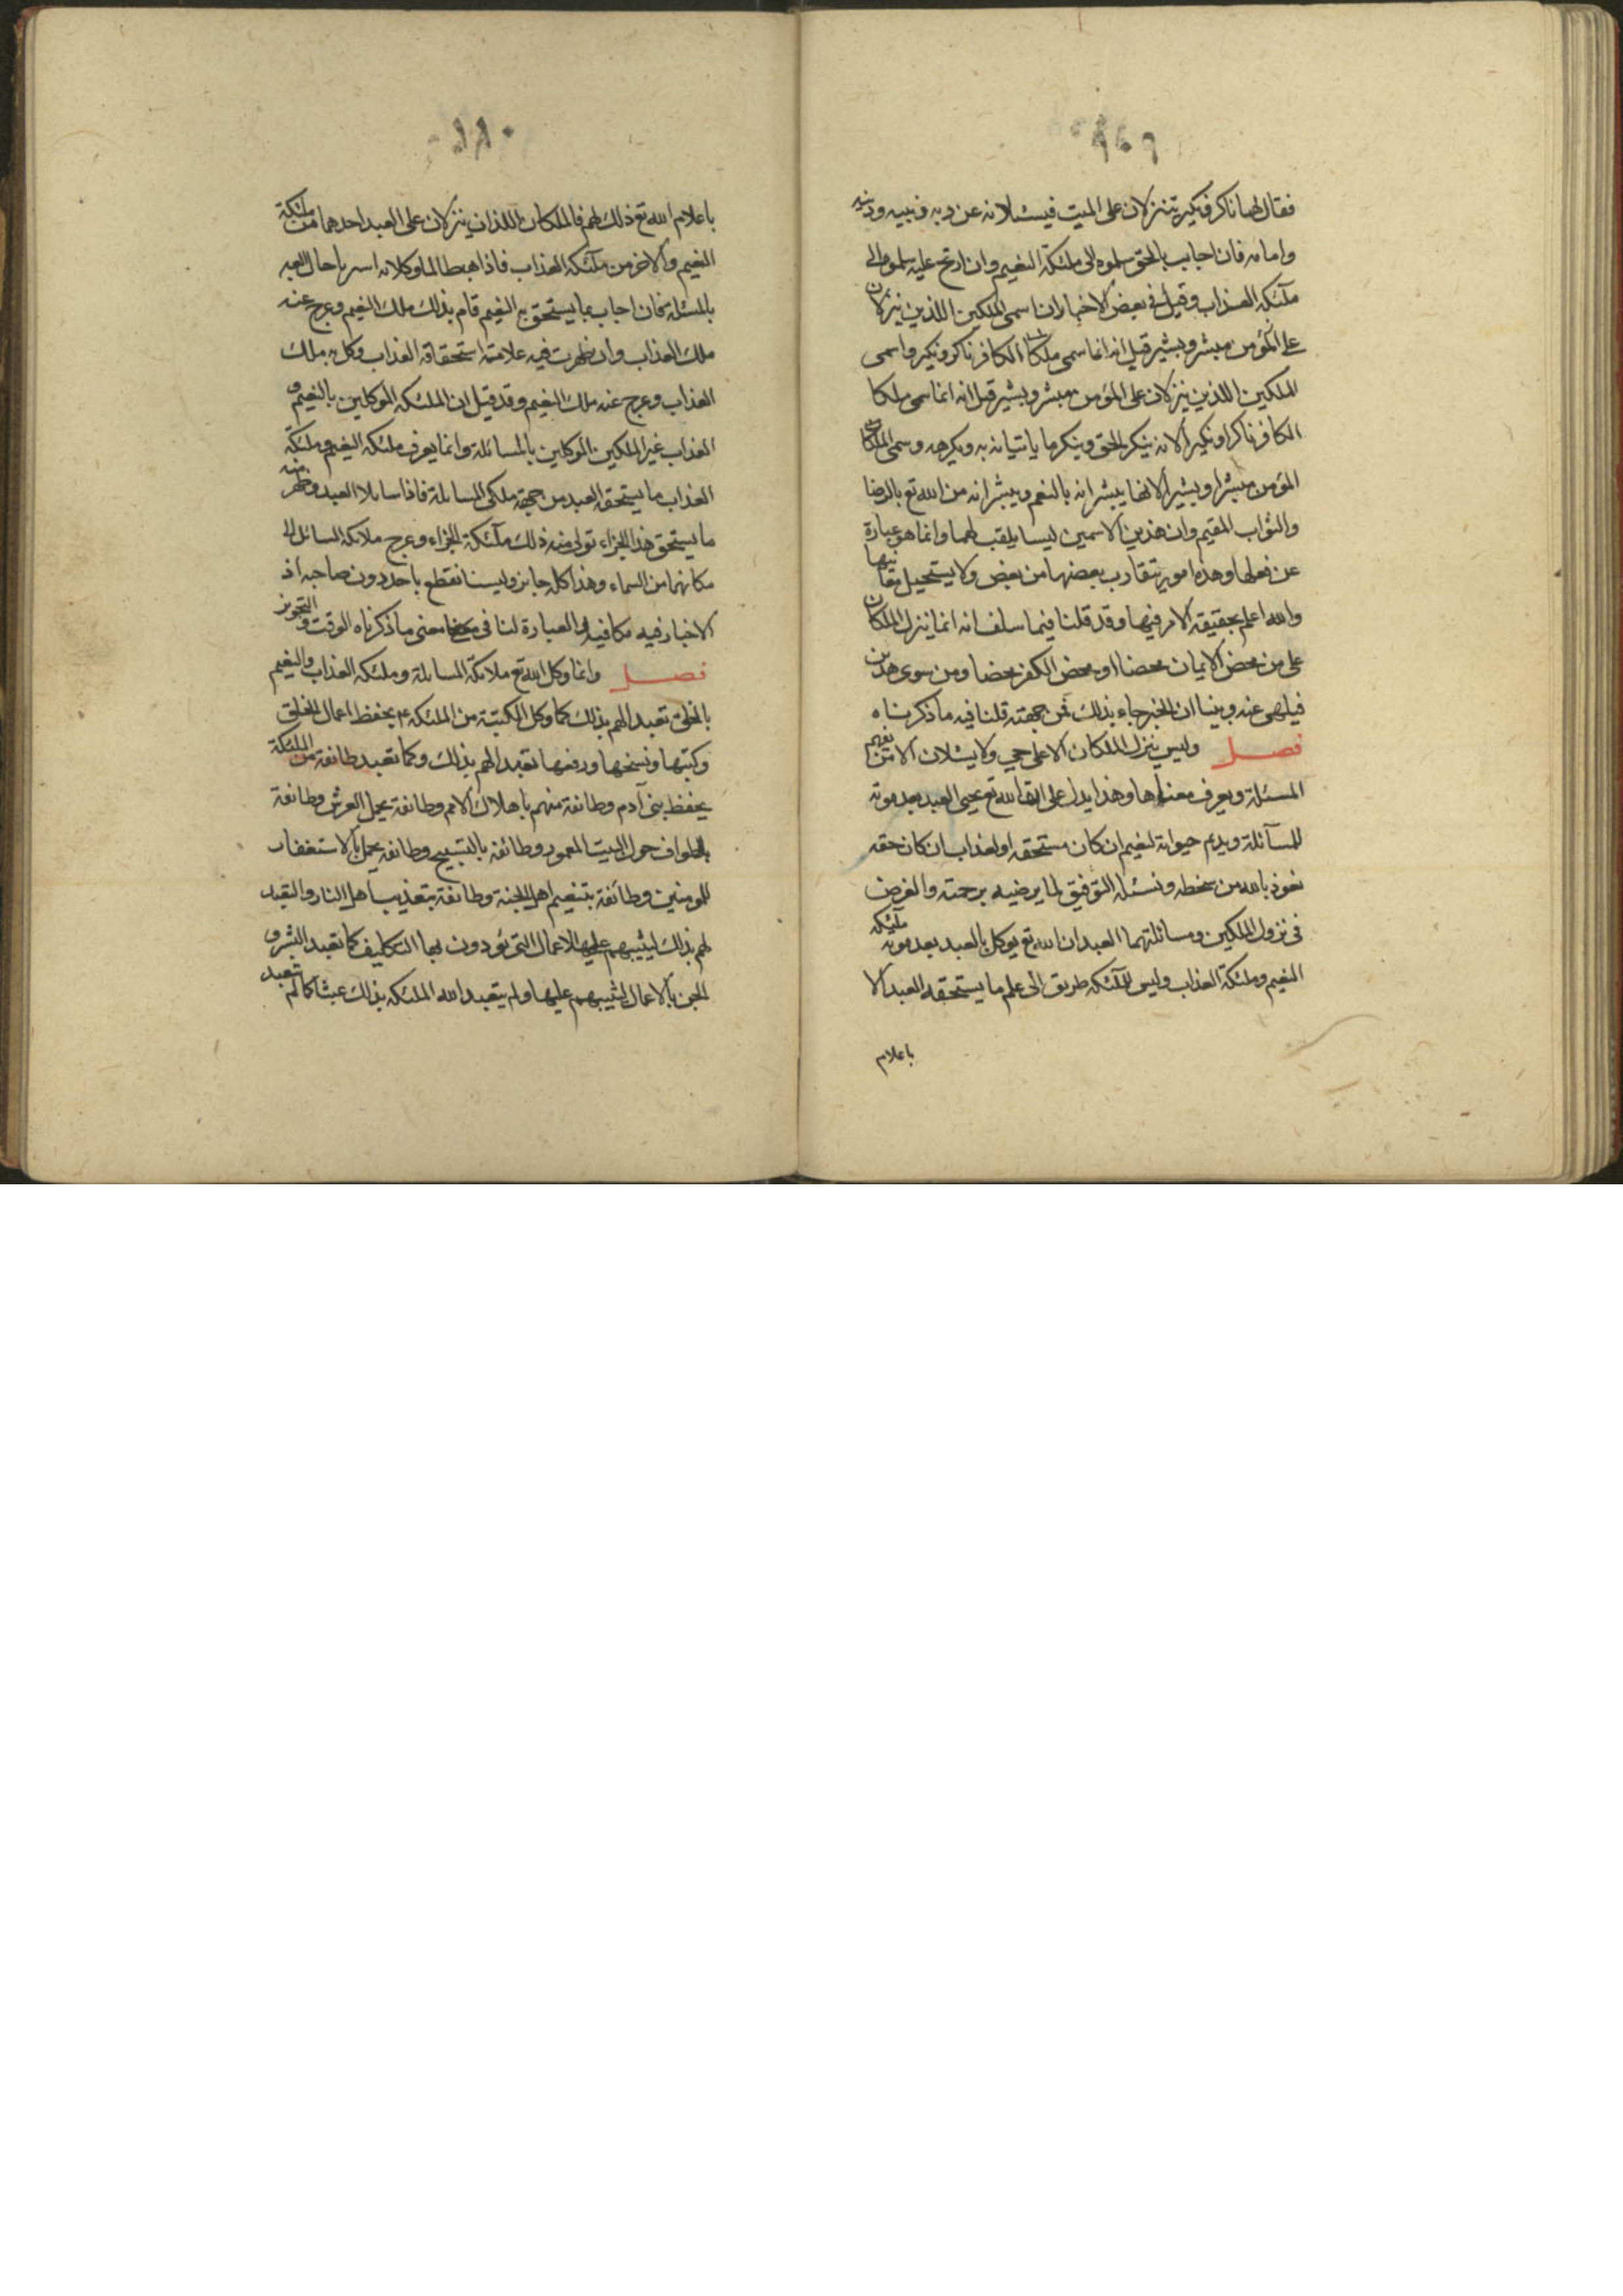 فقال لهما ناكر ونكير تنزلان على الميت فيسئلانه عن ربه ونبيه ودينه
وامامه فان اجاب بالحق سلموه الى ملئكة النعيم وان ارتج عليه سلموه الى
ملئكة العذاب وقيل في بعض الاخبار ان اسمى الملكين اللذين ينزلان
على المؤمن مبشر وبشير قيل انه انما سمى ملكا الكافر ناكر ونكير واسمى
الملكين اللذين ينزلان على المؤمن مبشر وبشير قيل انه انما سمى ملكا
الكافر ناكرا ونكيرا لانه ينكر الحق وينكر ما ياتيانه به ويكرهه وسمى ملكا
المؤمن مبشرا وبشيرا لانهما يبشرانه بالنعيم ويبشرانه من الله تع بالرضا
والثواب المقيم وان هذين الاسمين ليسا بلقب لهما وانما هو عبارة
عن فعلهما وهذه امور يتقارب بعضها من بعض ولا يستحيل معانيها
والله اعلم بحقيقة الامر فيها وقد قلنا فيما سلف انه انما ينزل الملكان
على من محض الايمان محضا او محض الكفر محضا ومن سوى هذين
فيلهى عنه وبينا ان الخبر جاء بذلك فمن جهته قلنا فيه ما ذكرناه
فصل وليس ينزل الملكان الا على حي ولا يسئلان الا من يفهم
المسئلة ويعرف معناها وهذا يدل على ان الله تع يحيى العبد بعد موته
للمسآئلة ويديم حيواته لنعيم ان كان مستحقه او لعذاب ان كان حقه
نعوذ بالله من سخطه ونسئله التوفيق لما يرضيه برحمته والغرض
في نزول الملكين ومسائلتهما العبد ان الله تع يوكل بالعبد بعد موته ملئكة
النعيم وملئكة العذاب وليس للملئكة طريق الى علم ما يستحقه العبد الا
باعلام
باعلام الله تع ذلك لهم فالملكان اللذان ينزلان على العبد احدهما من ملئكة
النعيم والاخر من ملئكة العذاب فاذا هبطا لما وكلا به استربا حال العبد
بالمسئلة فان اجاب بما يستحق به النعيم قام بذلك ملك النعيم وعرج عنه
ملك العذاب وان ظهرت فيه علامة استحقاقه العذاب وكل به ملك
العذاب وعرج عنه ملك النعيم وقد قيل ان الملئكة الموكلين بالنعيم و
العذاب غير الملكين الموكلين بالمسائلة وانما يعرف ملئكة النعيم وملئكة
العذاب ما يستحقه العبد من جهة ملكي المسايلة فاذا سايلا العبد وظهر منه
ما يستحق هذا الجزاء تولى منه ذلك ملئكة الجزاء وعرج ملائكة السائل الى
مكانهما من السماء وهذا كله جايز ولسنا نقطع باحد دون صاحبه اذ
الاخبار فيه مكافية والعبارة لنا في معنى ما ذكرناه الوقت والتجويز
فصل وانما وكل الله تع ملائكة المسايلة وملئكة العذاب والنعيم
بالخلق تعبدا لهم بذلك كما وكل الكتبة من الملئكة ع م بحفظ اعمال الخلق
وكتبها ونسخها ورفعها تعبدا لهم بذلك وكما تعبد طائفة من الملئكة
بحفظ بني آدم وطائفة منهم باهلاك الامم وطائفة بحمل العرش وطائفة
بالطواف حول البيت المعمور وطائفة بالتسبيح وطائفة بالاستغفار
للمومنين وطائفة بتنعيم اهل الجنة وطائفة بتعذيب اهل النار والتعبد
لهم بذلك ليثيبهم عليها الاعمال التي يؤدون بها التكليف كما تعبد البشر و
الجن بالاعمال ليثيبهم عليها ولم يتعبد الله الملئكة بذلك عبثا كما لم يتعبد